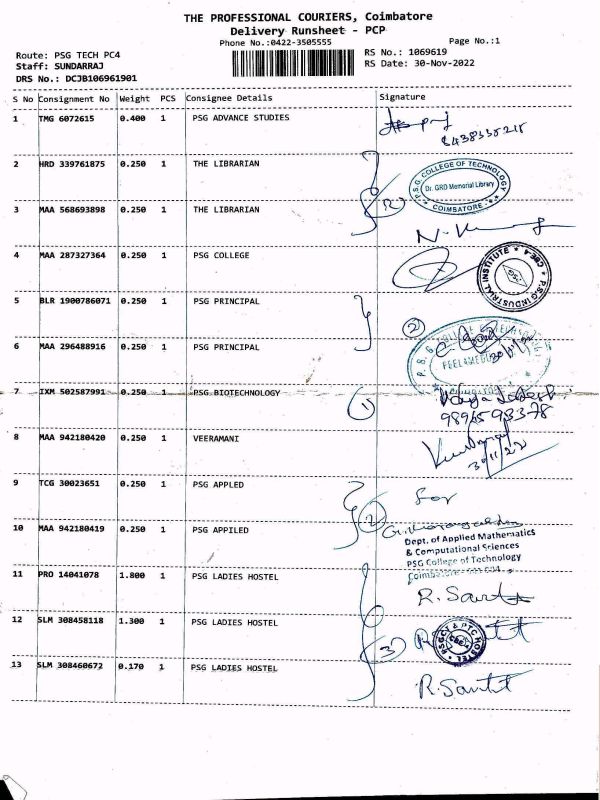 THE PROFESSIONAL COURIERS, Coimbatore
Delivery Runsheet - PCP
Phone No.:0422-3505555
Page No.:1
Route: PSG TECH PC4
RS No.: 1069619
Staff: SUNDARRAJ
RS Date: 30-Nov-2022
DRS No.: DCJB106961901
S No Consignment No Weight PCS Consignee Details Signature
1 TMG 6072615 0.400 1 PSG ADVANCE STUDIES
2 HRD 339761875 0.250 1 THE LIBRARIAN
P.S.G. COLLEGE OF TECHNOLOGY
Dr. GRD Memorial Library
COIMBATORE
3 MAA 568693898 0.250 1 THE LIBRARIAN
(2)
4 MAA 287327364 0.250 1 PSG COLLEGE
P.S.G INDUSTRIAL INSTITUTE CBE-4
PSG
5 BLR 1900786071 0.250 1 PSG PRINCIPAL
(2)
6 MAA 296488916 0.250 1 PSG PRINCIPAL
7 IXM 502587991 0.250 1 PSG BIOTECHNOLOGY
(1)
8 MAA 942180420 0.250 1 VEERAMANI
30/11/22
9 TCG 30023651 0.250 1 PSG APPLED
For
(2)
10 MAA 942180419 0.250 1 PSG APPILED
Dept. of Applied Mathematics
& Computational Sciences
PSG College of Technology
11 PRO 14041078 1.800 1 PSG LADIES HOSTEL
12 SLM 308458118 1.300 1 PSG LADIES HOSTEL
PSGCT & PTC HOSTEL
(3)
13 SLM 308460672 0.170 1 PSG LADIES HOSTEL